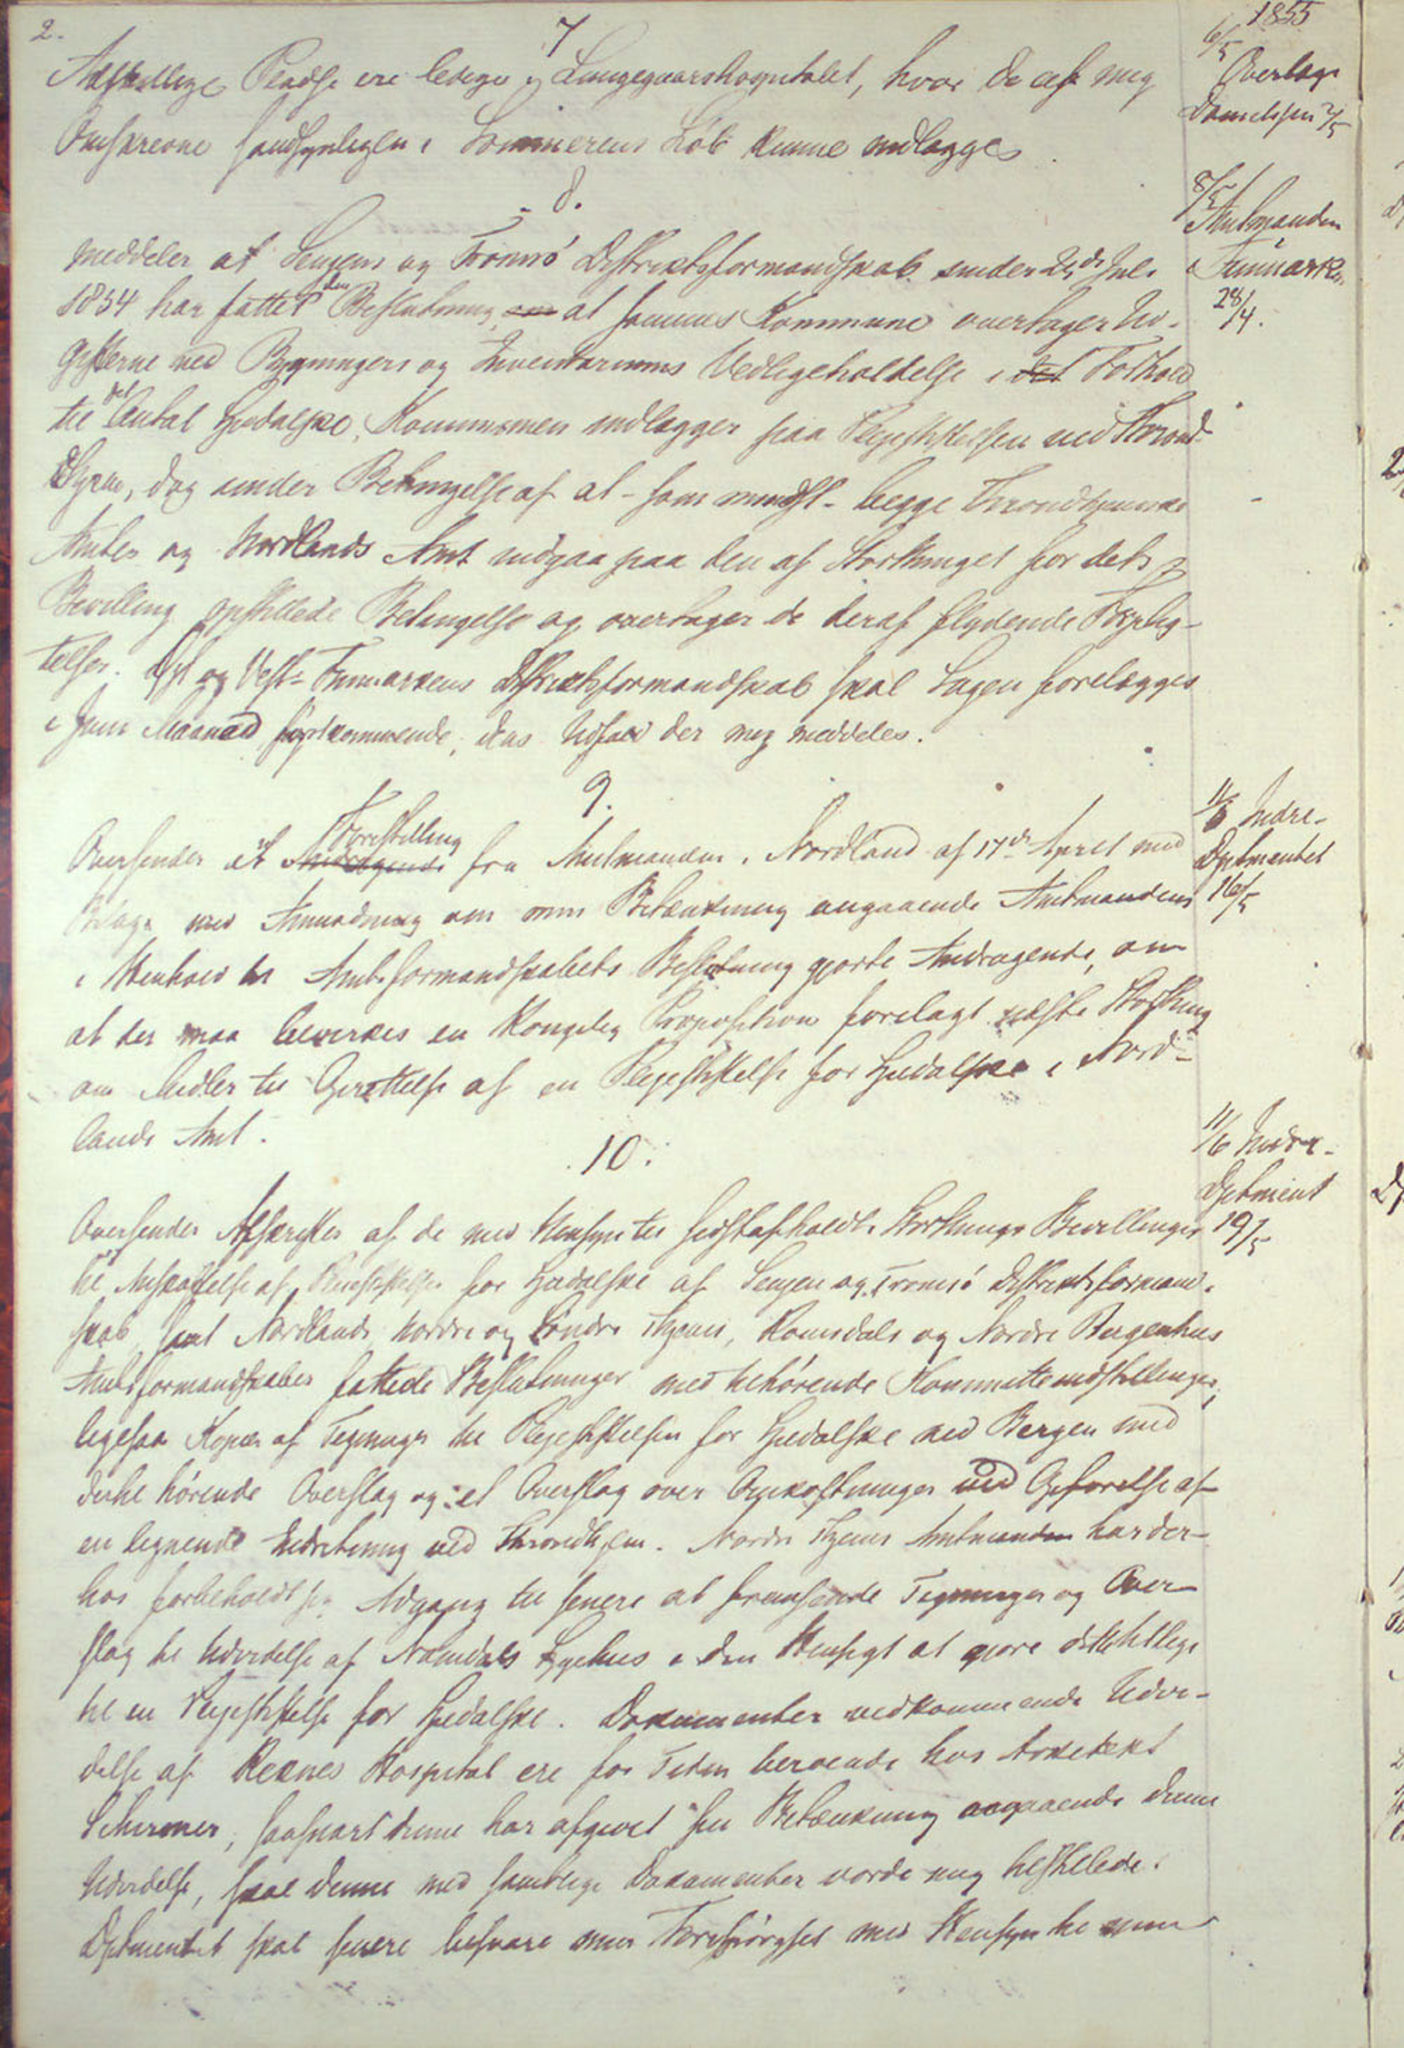 2.
1855
7
6/5 Overlæge
Danielssen 2/5
Adskillige Pladse ere ledige i Lungegaardshospitalet, hvor de af mig
Omskrevne sandsynligen i Sommerens Løb kunne indlægges.
8.
8/5 Amtmanden
i Finmarken
28/4.
meddeler at Senjens og Tromsø Distriktsformandskab under 25de Juli
1854 har fattet den Beslutning, om at sammes Kommune overtager Ud-
gifterne ved Bygningers og Inventariums Vedligeholdelse i det Forhold
til det Antal Spedalske, Kommunen indlægger paa Plejestiftelsen ved Thrond-
hjem, dog under Betingelse af at - som mindst - begge Throndhjemske
Amter og Nordlands Amt indgaa paa den af Storthinget for dets
Bevilling opstillede Betingelse og overtager de deraf flydende Forplig-
telser. Øst og Vest-Finmarkens Distriktsformandskab skal Sagen forelægges
i Juni Maaned førstkommende, dens Udfald der mig meddeles.
9.
11/6 Indre-
Dptmentet
16/5
Forestilling
Oversender et Andragende fra Amtmanden i Nordland af 17de April med
Bilage med Anmodning om min Betænkning angaaende Amtmandens
i Henhold til Amtsformandskabets Beslutning gjorte Andragende, om
at der maa bevirkes en Kongelig Proposition forelagt næste Storthing
om Midler til Oprettelse af en Plejestiftelse for Spedalske i Nord-
lands Amt.
10.
11/6 Indre-
Dptment
19/5
Oversender Afskrifter af de med Hensyn til sidstafholdte Storthings Bevillinger
til Anskaffelse af Plejestiftelser for Spedalske af Senjen og Tromsø Distriktsformand-
skab, samt Nordlands, Nordre og Søndre Thjems, Romsdals og Nordre Bergenhus
Amtsformandskaber fattede Beslutninger med tilhørende Kommitteindstillinger,
ligesaa Kopier af Tegninger til Plejestiftelsen for Spedalske ved Bergen med
dertil hørende Overslag og et Overslag over Omkostninger ved Opførelse af
en lignende Indretning ved Throndhjem. Nordre Thjems Amtmanden har der-
hos forbeholdt sig Adgang til senere at fremsende Tegninger og Over-
slag til Udvidelse af Namdals Sygehus i den Hensigt at gjøre dette tillige
til en Plejestiftelse for Spedalske. Dokumenter vedkommende Udvi-
delse af Reknes Hospital ere for Tiden beroende hos Arkitekt
Schirmer, saasnart denne har afgivet sin Betænkning angaaende denne
Udvidelse, skal denne med samtlige Dokumenter vorde mig tilstillede.
Dptmentet skal senere besvare min Forespørgsel med Hensyn til min